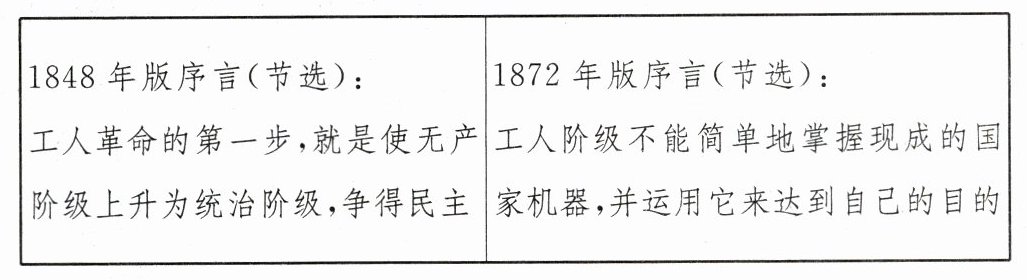 1848 年版序言(节选):
工人革命的第一步,就是使无产
阶级上升为统治阶级,争得民主
1872 年版序言(节选):
工人阶级不能简单地掌握现成的国
家机器,并运用它来达到自己的目的